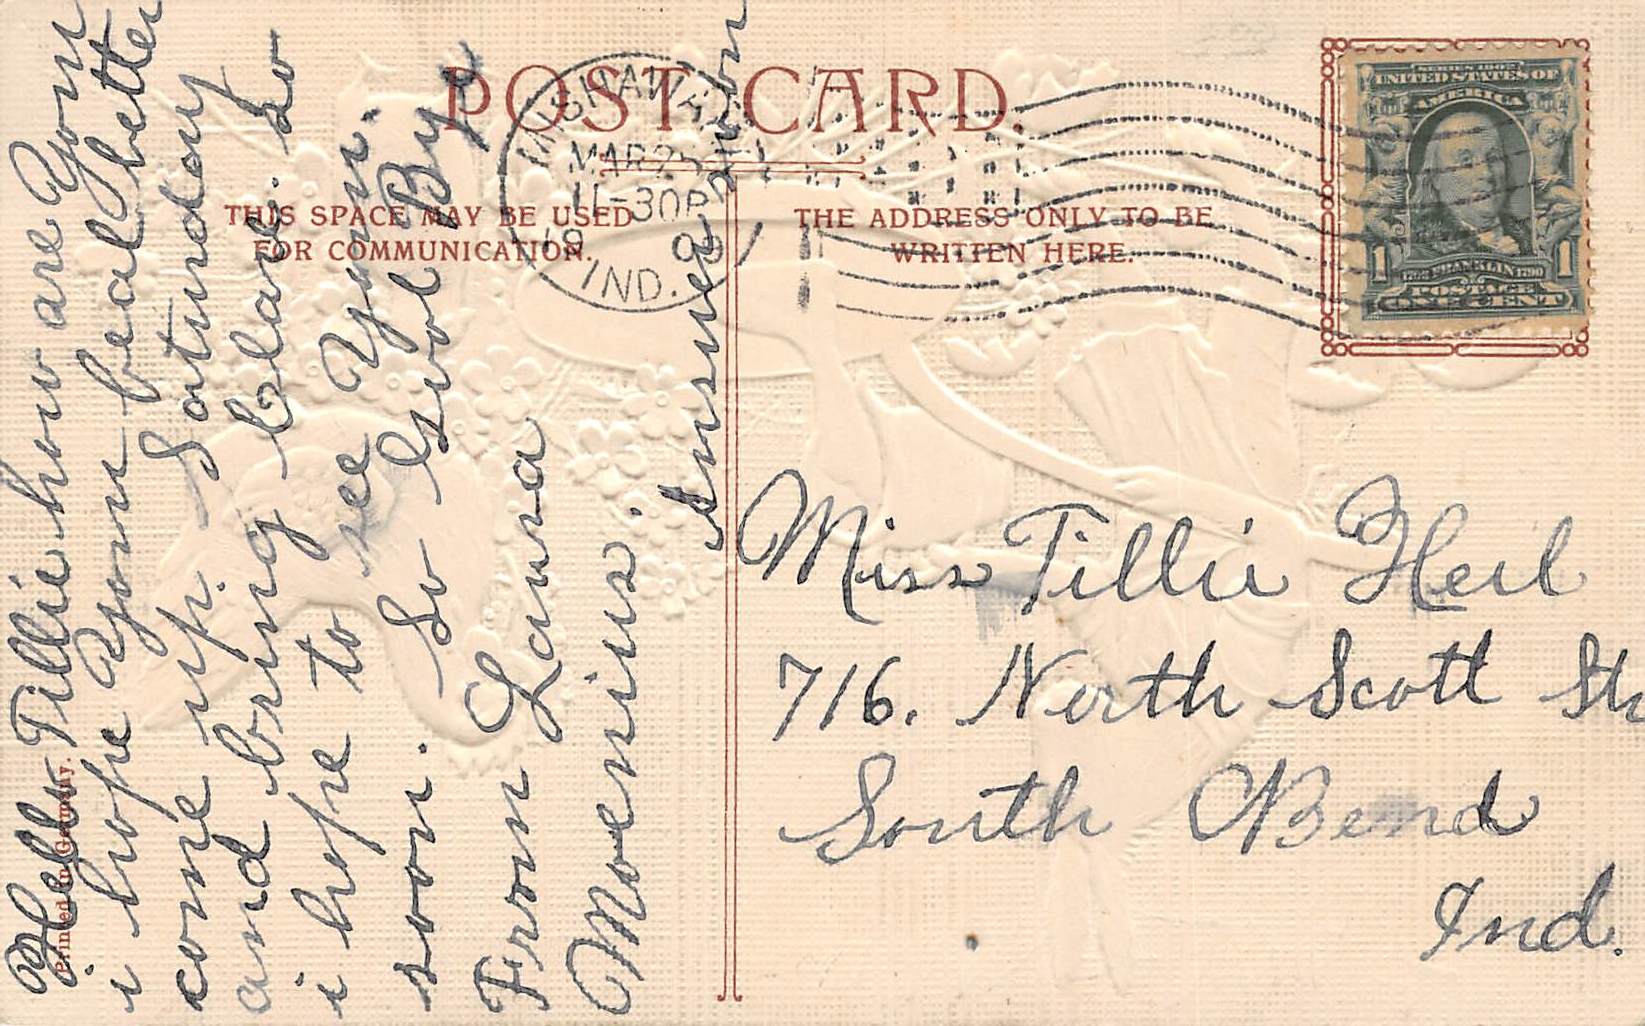 POST CARD.
THIS SPACE MAY BE USED
FOR COMMUNICATION.
THE ADDRESS ONLY TO BE
WRITTEN HERE.
MISHAWAKA
MAR 25
11-30P
19 08
IND.
SERIES 1902
UNITED STATES OF
AMERICA
1 1
1706 FRANKLIN 1790
POSTAGE
ONE CENT
Hello Tillie how are You
i hope You feal better
come up. Saturday
and bring Clare. So
i hope to see You.
soon. So Good Bye
From Laura
Moenius.
Answer soon
Miss Tillie Heil
716. North Scott Str
South Bend
Ind.
Printed in Germany.